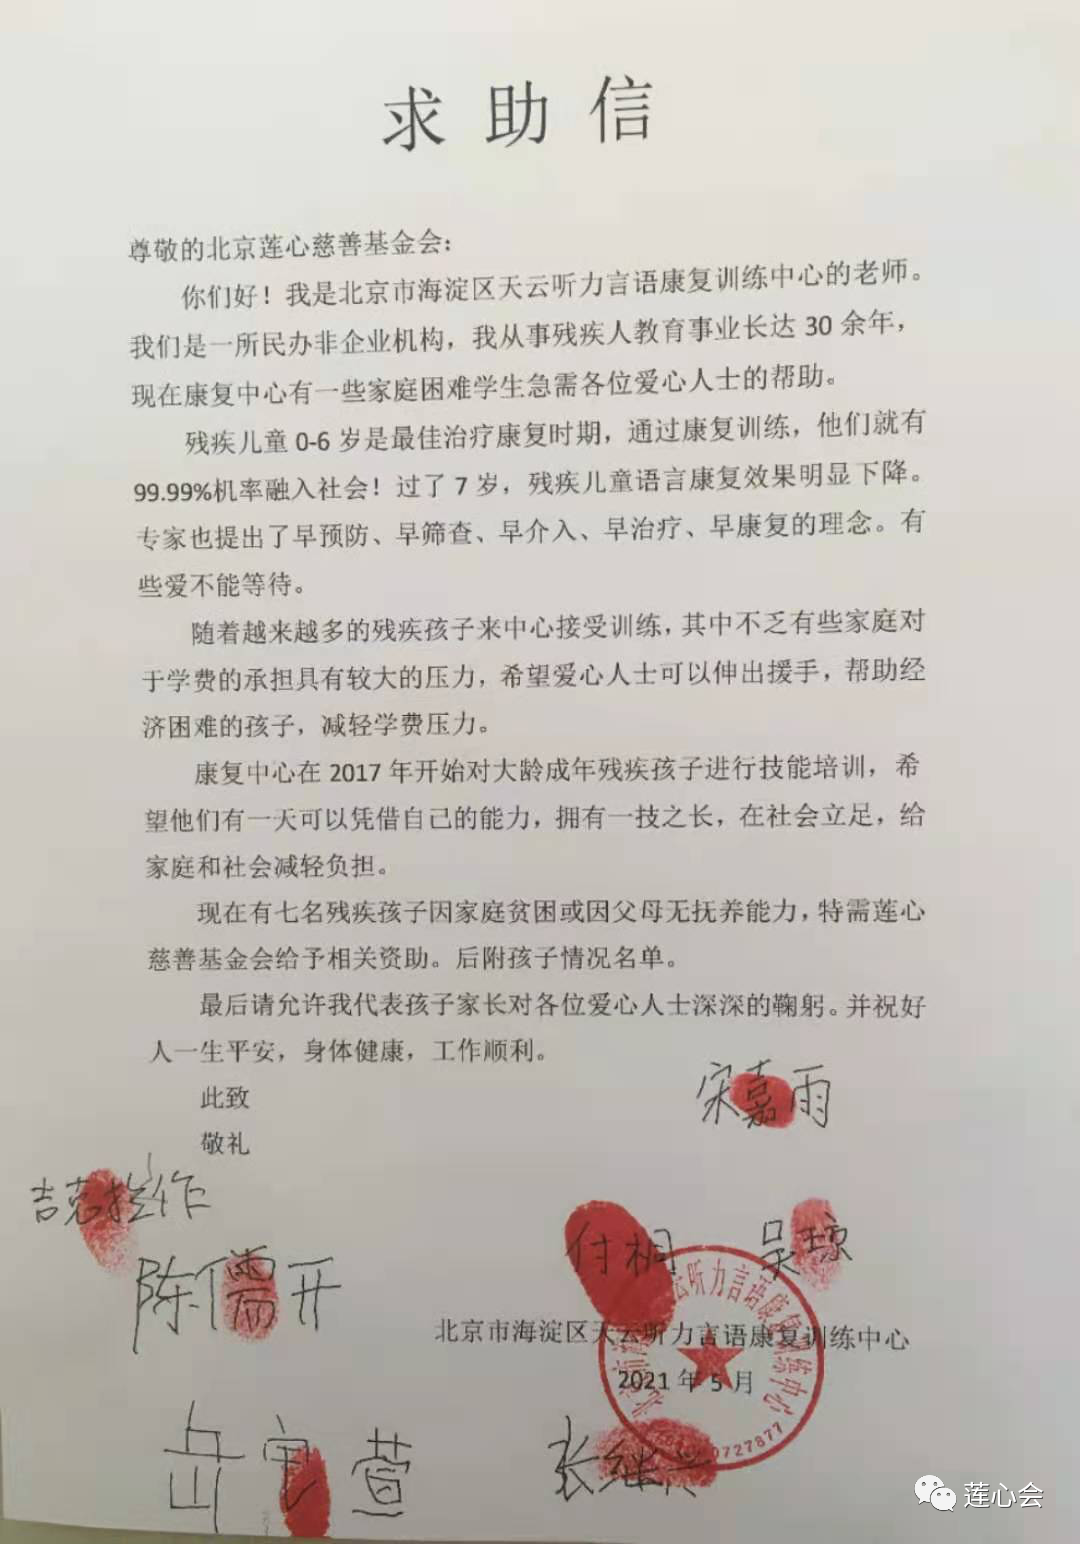 求助信
尊敬的北京莲心慈善基金会:
你们好!我是北京市海淀区天云听力言语康复训练中心的老师。
我们是一所民办非企业机构，我从事残疾人教育事业长达 30 余年，
现在康复中心有一些家庭困难学生急需各位爱心人士的帮助。
残疾儿童 0-6 岁是最佳治疗康复时期，通过康复训练，他们就有
99.99%机率融入社会!过了 7 岁，残疾儿童语言康复效果明显下降。
专家也提出了早预防、早筛查、早介入、早治疗、早康复的理念。有
些爱不能等待。
随着越来越多的残疾孩子来中心接受训练，其中不乏有些家庭对
于学费的承担具有较大的压力，希望爱心人士可以伸出援手，帮助经
济困难的孩子，减轻学费压力。
康复中心在 2017 年开始对大龄成年残疾孩子进行技能培训，希
望他们有一天可以凭借自己的能力，拥有一技之长，在社会立足，给
家庭和社会减轻负担。
现在有七名残疾孩子因家庭贫困或因父母无抚养能力，特需莲心
慈善基金会给予相关资助。后附孩子情况名单。
最后请允许我代表孩子家长对各位爱心人士深深的鞠躬。并祝好
人一生平安，身体健康，工作顺利。
此致
宋嘉雨
敬礼
吉克 作
付桐 吴琼
陈儒开
北京市海淀区天云听力言语康复训练中心
2021 年 5 月
岳 萱
张继
云听力言语康复训练中心
0727877
莲心会